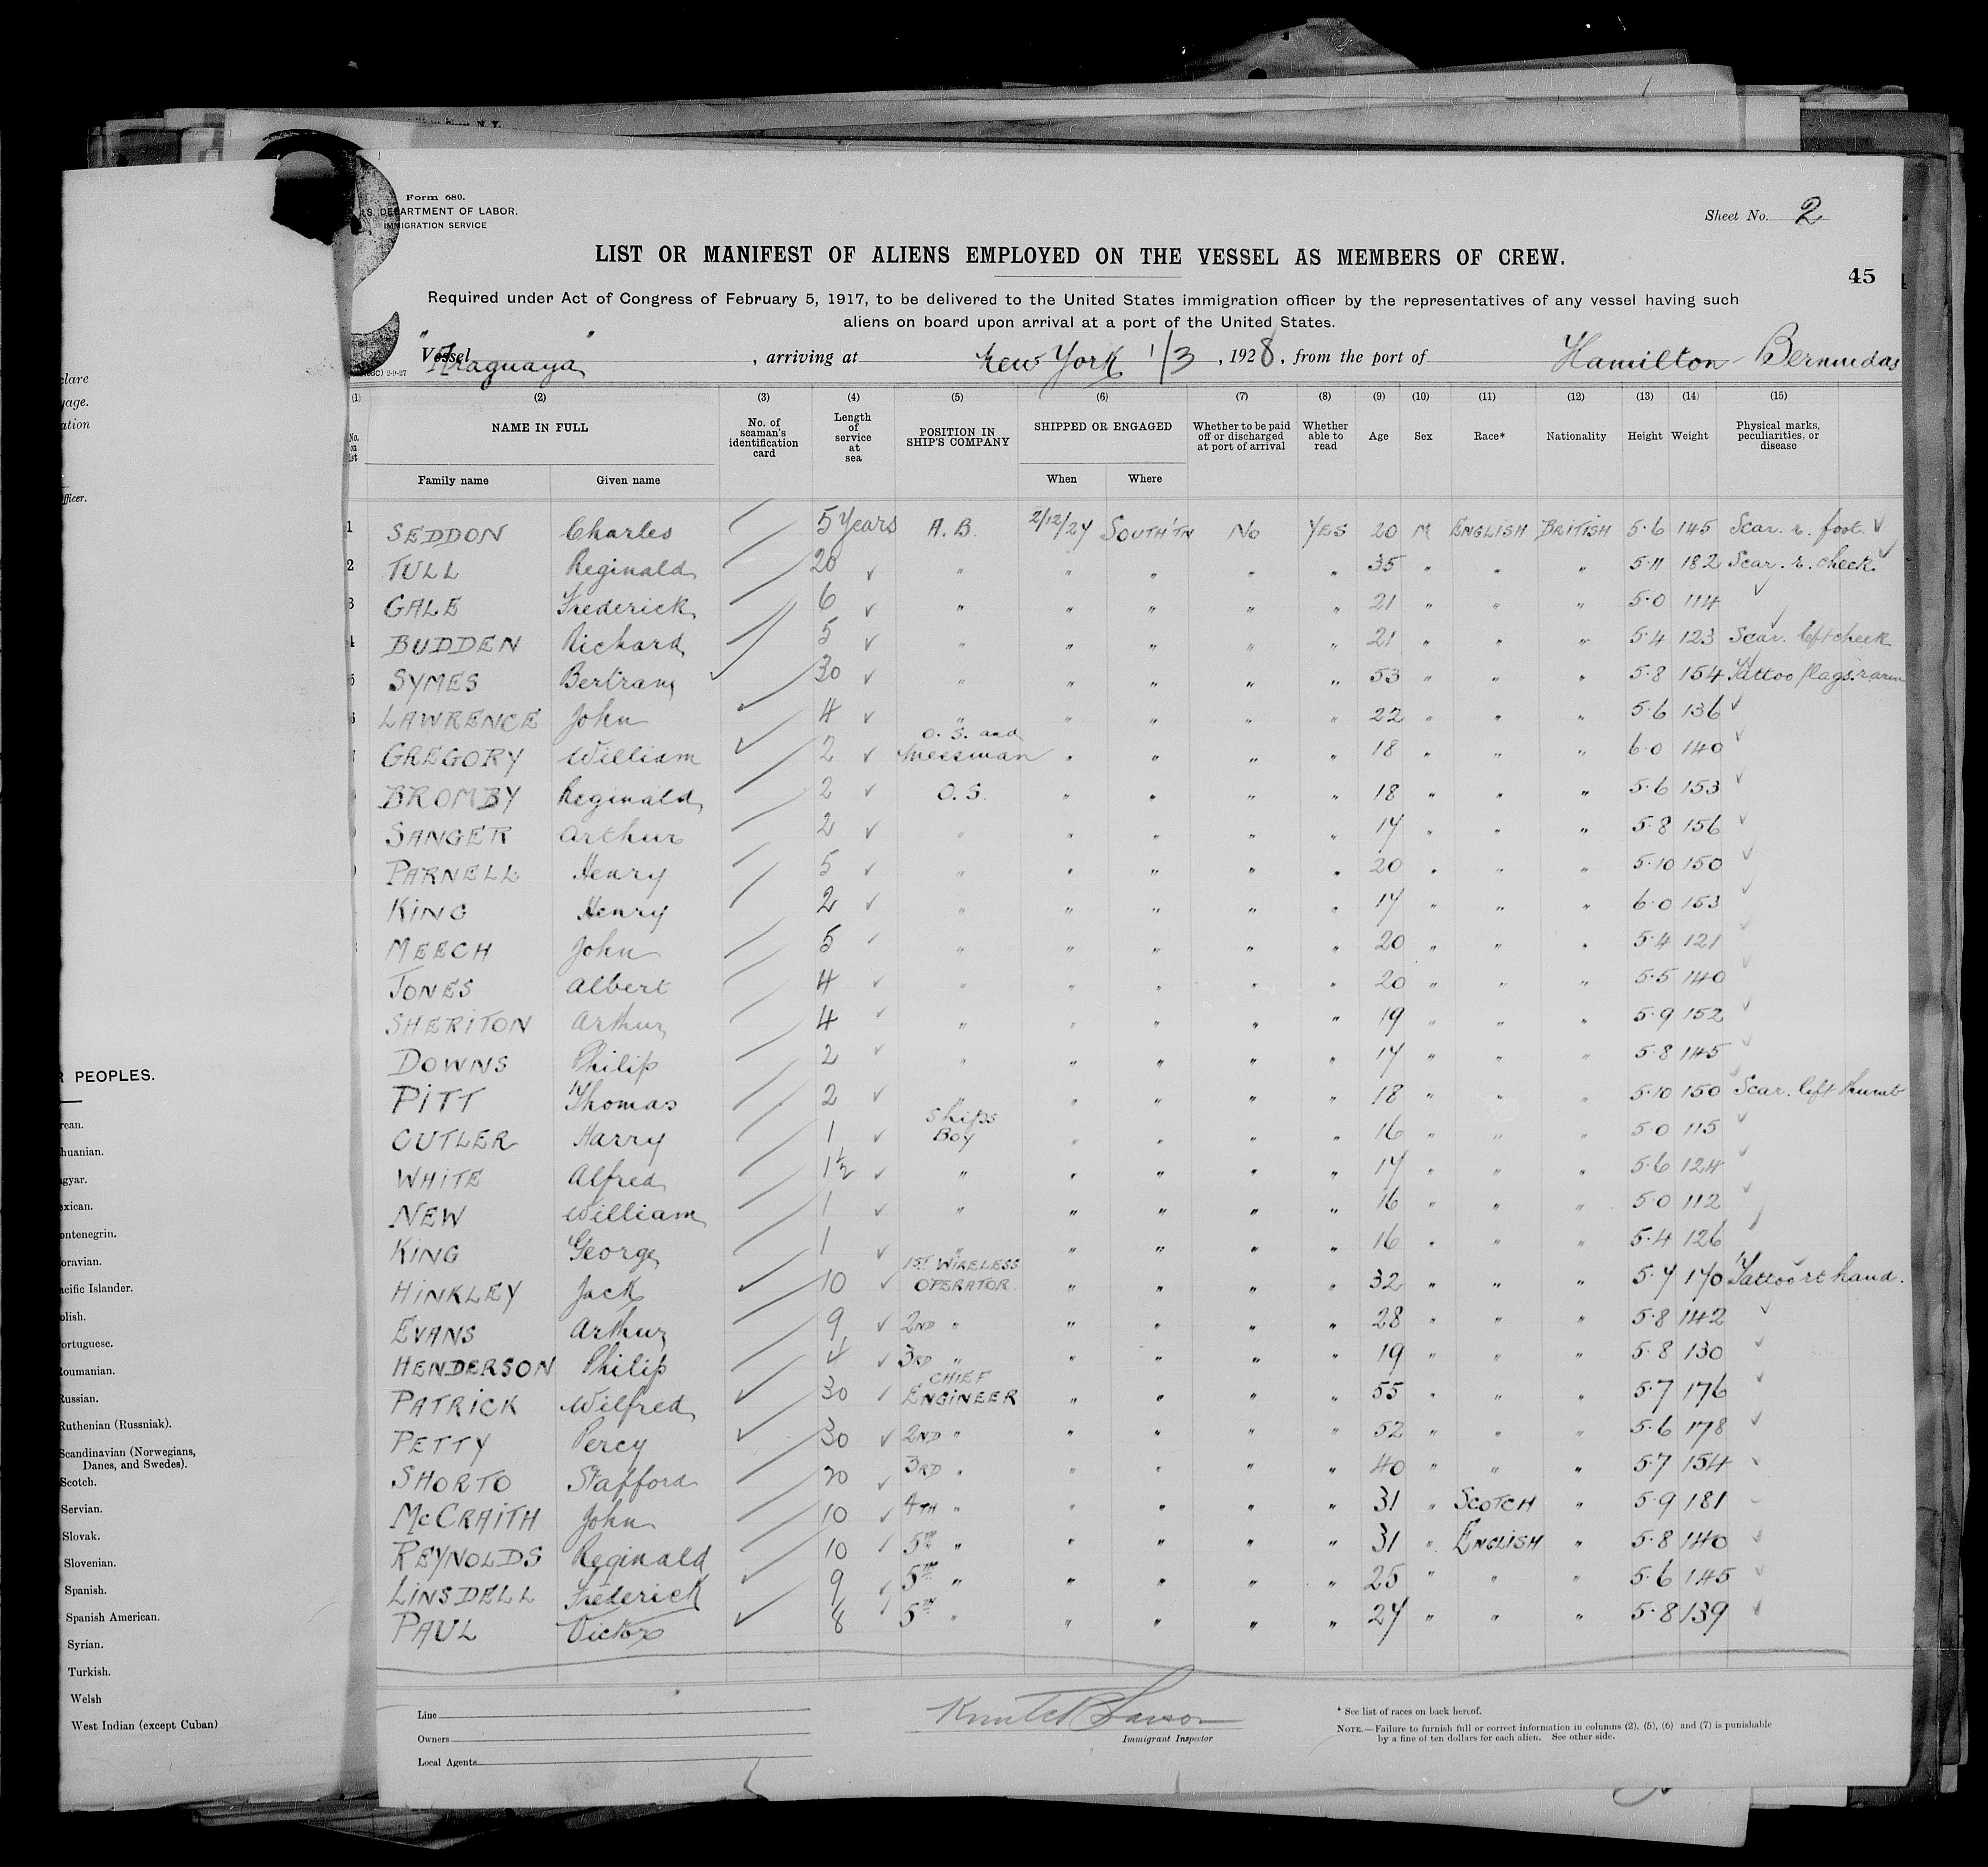 Form 680.
DEPARTMENT OF LABOR.
IMMIGRATION SERVICE
Sheet No. 2
LIST OR MANIFEST OF ALIENS EMPLOYED ON THE VESSEL AS MEMBERS OF CREW.
45
Required under Act of Congress of February 5, 1917, to be delivered to the United States immigration officer by the representatives of any vessel having such
aliens on board upon arrival at a port of the United States.
Vessel "Araguaya", arriving at New York 1/3, 1928, from the port of Hamilton - Bermudas
(1) (2) (3) (4) (5) (6) (7) (8) (9) (10) (11) (12) (13) (14) (15)
No. on list NAME IN FULL No. of seaman's identification card Length of service at sea POSITION IN SHIP'S COMPANY SHIPPED OR ENGAGED Whether to be paid off or discharged at port of arrival Whether able to read Age Sex Race* Nationality Height Weight Physical marks, peculiarities, or disease
Family name Given name When Where
1 SEDDON Charles 5 Years A.B. 2/12/27 SOUTH'TN No YES 20 M ENGLISH BRITISH 5·6 145 Scar. r. foot. ✓
2 TULL Reginald 20 ✓ " " " " " 35 " " " 5·11 182 Scar. r. cheek. ✓
3 GALE Frederick 6 ✓ " " " " " 21 " " " 5·0 114 ✓
4 BUDDEN Richard 5 ✓ " " " " " 21 " " " 5·4 123 Scar. left cheek
5 SYMES Bertram 30 ✓ " " " " " 53 " " " 5·8 154 Tattoo flags r arm
LAWRENCE John 4 ✓ " " " " " 22 " " " 5·6 136 ✓
GREGORY William 2 ✓ O.S. and Messman " " " " 18 " " " 6·0 140 ✓
BROMBY Reginald 2 ✓ O.S. " " " " 18 " " " 5·6 153 ✓
SANGER Arthur 2 ✓ " " " " " 17 " " " 5·8 156 ✓
PARNELL Henry 5 ✓ " " " " " 20 " " " 5·10 150 ✓
KING Henry 2 ✓ " " " " " 17 " " " 6·0 153 ✓
MEECH John 5 ✓ " " " " " 20 " " " 5·4 121 ✓
JONES Albert 4 ✓ " " " " " 20 " " " 5·5 140 ✓
SHERITON Arthur 4 ✓ " " " " " 19 " " " 5·9 152 ✓
DOWNS Philip 2 ✓ " " " " " 17 " " " 5·8 145 ✓
PITT Thomas 2 ✓ " " " " " 18 " " " 5·10 150 Scar. left thumb
CUTLER Harry 1 ✓ Ships Boy " " " " 16 " " " 5·0 115 ✓
WHITE Alfred 1½ ✓ " " " " " 17 " " " 5·6 124 ✓
NEW William 1 ✓ " " " " " 16 " " " 5·0 112 ✓
KING George 1 ✓ " " " " " 16 " " " 5·4 126 ✓
HINKLEY Jack 10 ✓ 1ST WIRELESS OPERATOR " " " " 32 " " " 5·7 170 Tattoo rt hand.
EVANS Arthur 9 ✓ 2ND " " " " " 28 " " " 5·8 142 ✓
HENDERSON Philip 4 ✓ 3RD " " " " " 19 " " " 5·8 130 ✓
PATRICK Wilfred 30 ✓ CHIEF ENGINEER " " " " 55 " " " 5·7 176 ✓
PETTY Percy 30 ✓ 2ND " " " " " 52 " " " 5·6 178 ✓
SHORTO Stafford 20 ✓ 3RD " " " " " 40 " " " 5·7 154 ✓
McCRAITH John 10 ✓ 4TH " " " " " 31 " SCOTCH " 5·9 181 ✓
REYNOLDS Reginald 10 ✓ 5TH " " " " " 31 " ENGLISH " 5·8 140 ✓
LINSDELL Frederick 9 ✓ 5TH " " " " " 25 " " " 5·6 145 ✓
PAUL Victor 8 ✓ 5TH " " " " " 27 " " " 5·8 139 ✓
Line
Owners
Local Agents
Immigrant Inspector
* See list of races on back hereof.
NOTE.—Failure to furnish full or correct information in columns (2), (5), (6) and (7) is punishable
by a fine of ten dollars for each alien. See other side.
PEOPLES.
Scandinavian (Norwegians,
Danes, and Swedes).
Ruthenian (Russniak).
Russian.
Scotch.
Servian.
Slovak.
Slovenian.
Spanish.
Spanish American.
Syrian.
Turkish.
Welsh
West Indian (except Cuban)